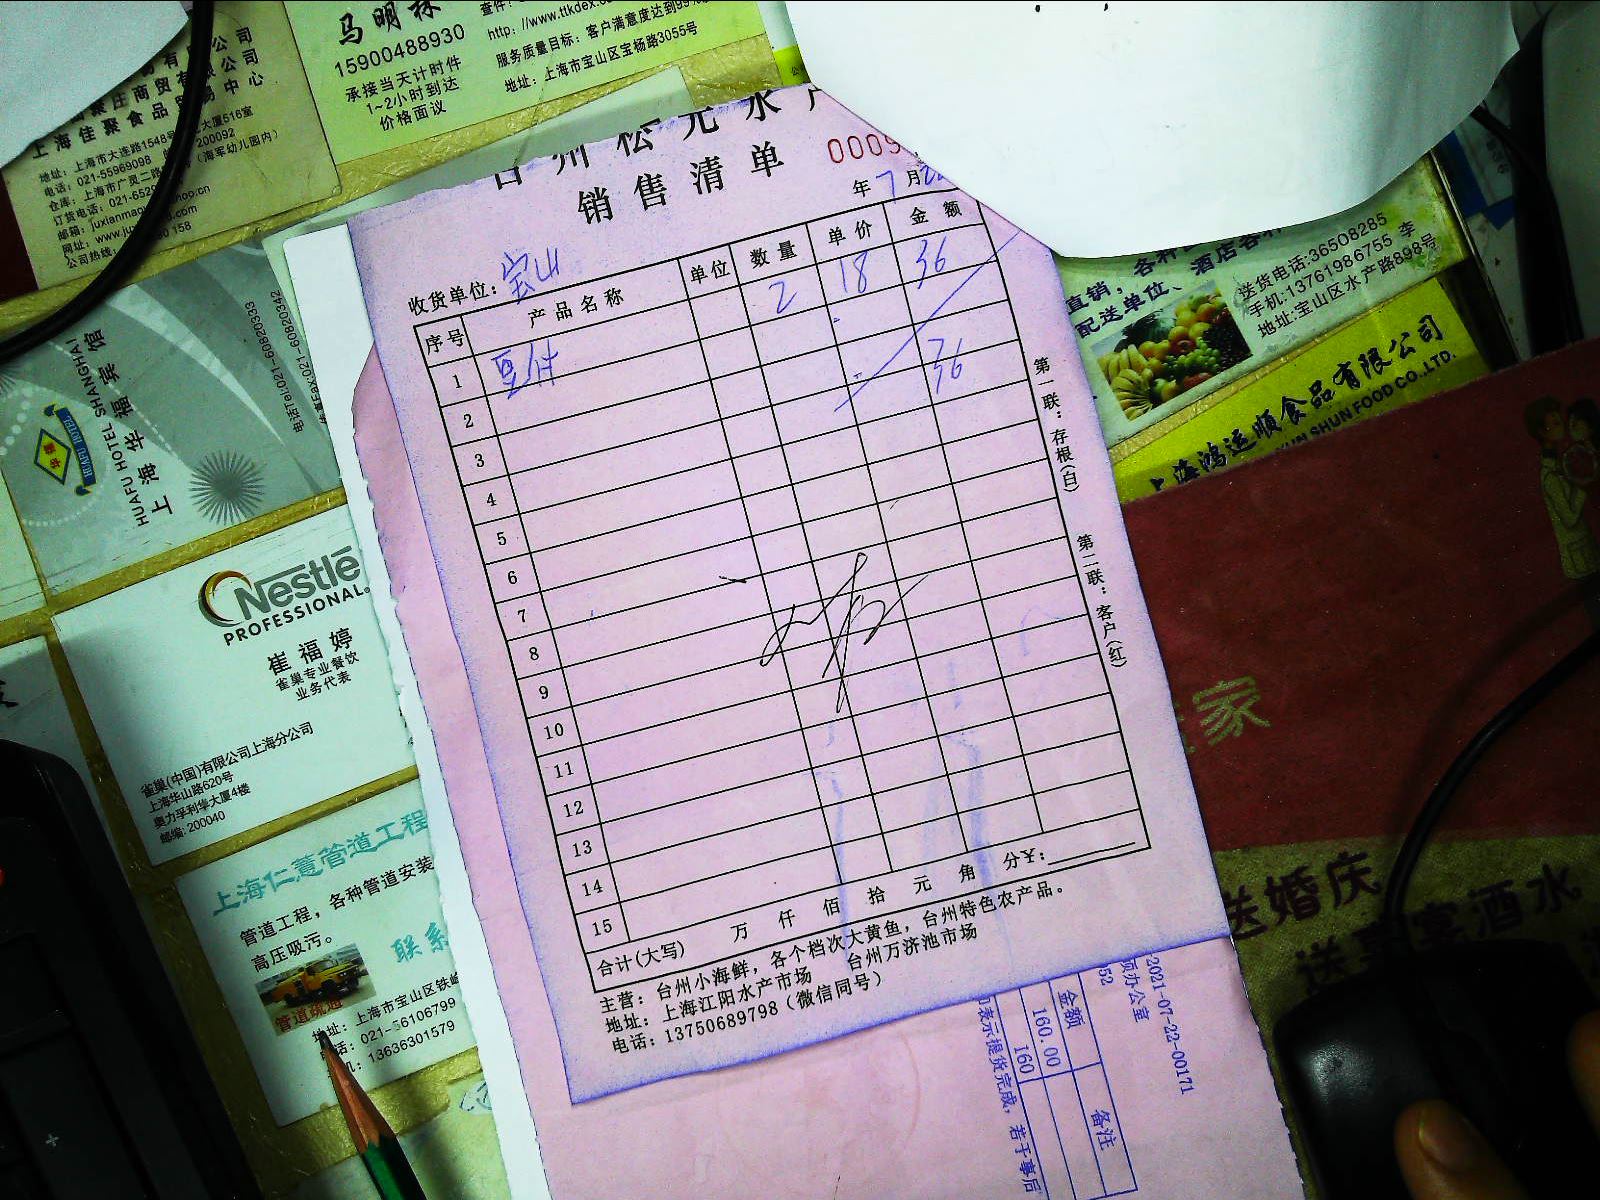 马明
15900488930
承接当天计时件
1~2小时到达
价格面议
http://www.ttkdex.co
服务质量目标：客户满意度达到99%
地址：上海市宝山区宝杨路3055号
上海佳聚食品贸易中心
地址：上海市大连路1548号
电话：021-55969098
200092
(海军幼儿园内)
台州松元水产
销售清单
0009
年 7 月
收货单位：宝山
序号 产品名称 单位 数量 单价 金额
1 豆付 2 18 36
2
3 36
4
5
6
7
8
9
10
11
12
13
14
15
合计(大写) 万 仟 佰 拾 元 角 分¥：
主营：台州小海鲜，各个档次大黄鱼，台州特色农产品。
地址：上海江阳水产市场 台州万济池市场
电话：13750689798（微信同号）
第一联：存根(白)
第二联：客户(红)
HUAFU HOTEL SHANGHAI
上海华福宾馆
电话Tel:021-60820333
Fax:021-60820342
Nestlé
PROFESSIONAL
崔福婷
雀巢专业餐饮
业务代表
雀巢(中国)有限公司上海分公司
上海华山路620号
奥力孚利华大厦4楼
邮编: 200040
上海仁薏管道工程
管道工程，各种管道安装
高压吸污。
联系
管道疏通
地址：上海市宝山区铁峰
021-56106799
13636301579
直销，各种
配送单位、酒店各
送货电话:36508285
手机:13761986755 李
地址:宝山区水产路898号
上海鸿运顺食品有限公司
SHUN FOOD CO.,LTD.
家
送婚庆
宴酒水
2021-07-22-00171
金额 备注
160.00
160
表示提货完成，若于事后